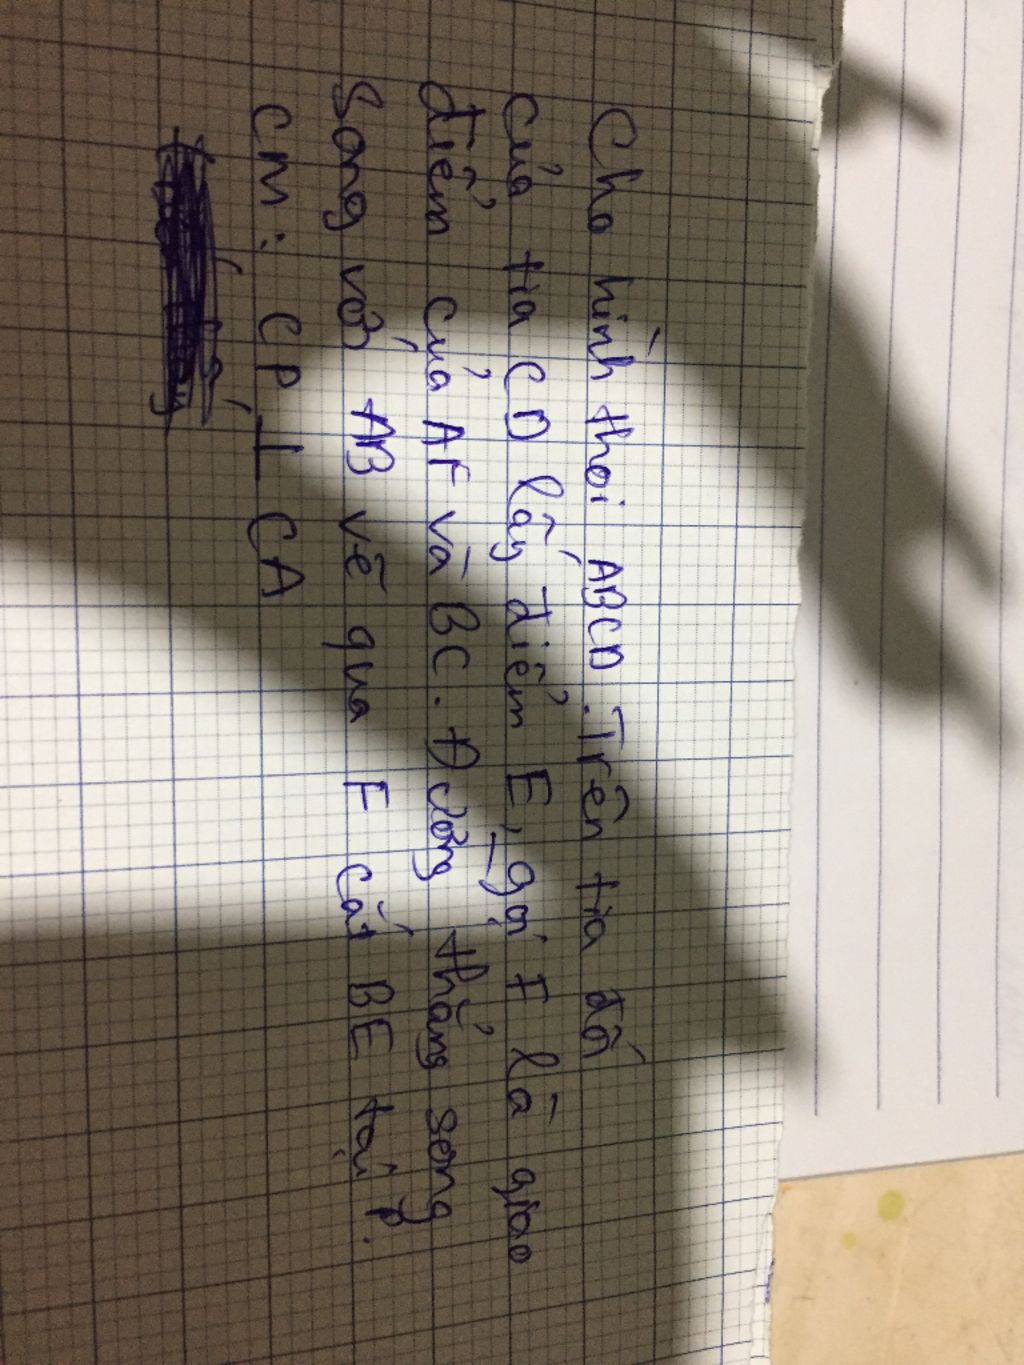 Cho hình thoi ABCD. Trên tia đối
của tia CD lấy điểm E, gọi F là giao
điểm của AF và BC. Đường thẳng song
song với AB vẽ qua F cắt BE tại P.
CM: CP ⊥ CA